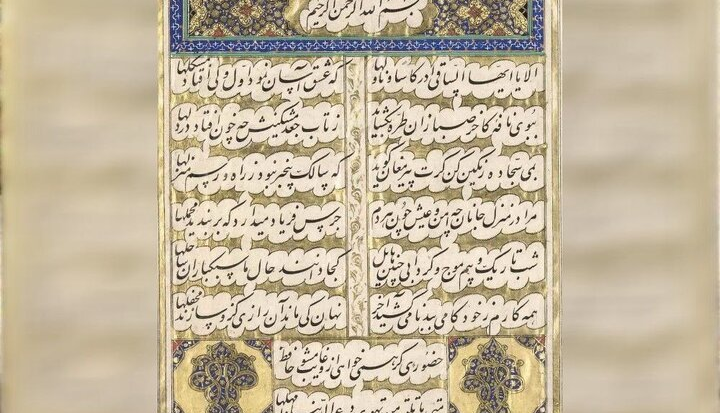 بسم الله الرحمن الرحیم
الا یا ایها الساقی ادر کاسا و ناولها که عشق آسان نمود اول ولی افتاد مشکلها
ببوی نافه کاخر صبا زان طره بکشاید ز تاب جعد مشکینش چه خون افتاد در دلها
بمی سجاده رنکین کن کرت پیر مغان کوید که سالک بیخبر نبود ز راه و رسم منزلها
مرا در منزل جانان چه امن و عیش چون هردم جرس فریاد میدارد که بربندید محملها
شب تاریک و بیم موج و کردابی چنین هایل کجا دانند حال ما سبکباران ساحلها
همه کارم ز خود کامی ببدنامی کشید آخر نهان کی ماند آن رازی کزو سازند محفلها
حضوری کر همی خواهی ازو غایب مشو حافظ
متی ما تلق من تهوی دع الدنیا